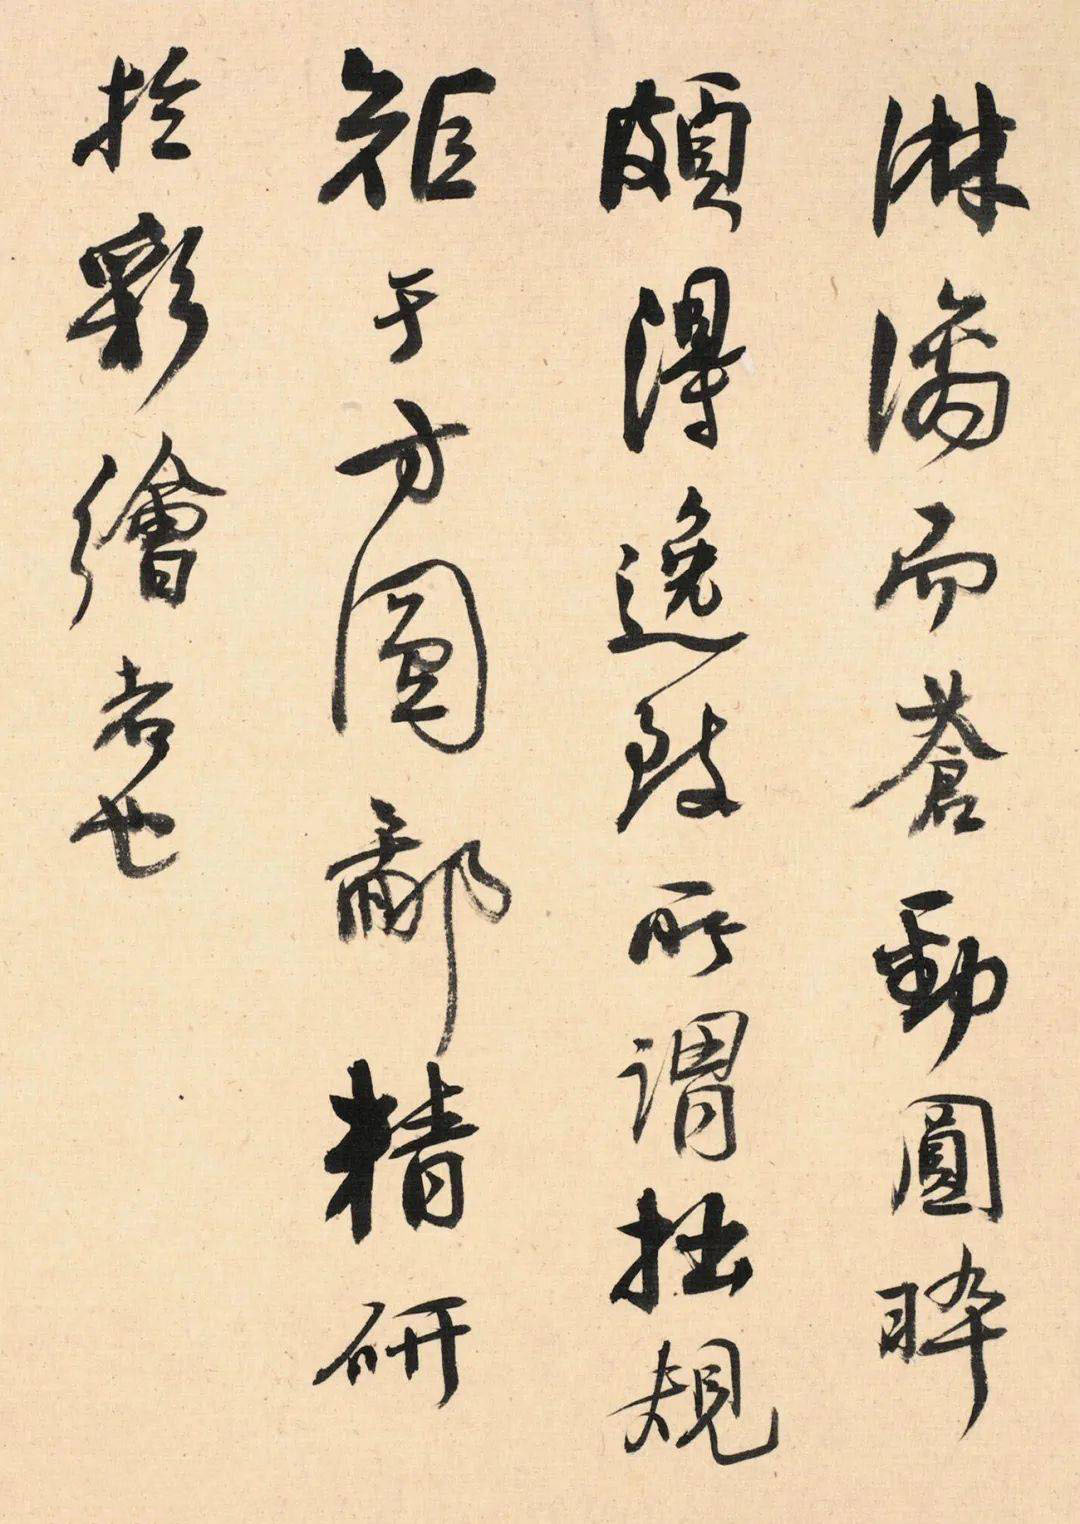 淋漓而蒼勁圓睟
頗得逸致所謂拙規
矩于方圓鄙精研
於彩繪者也